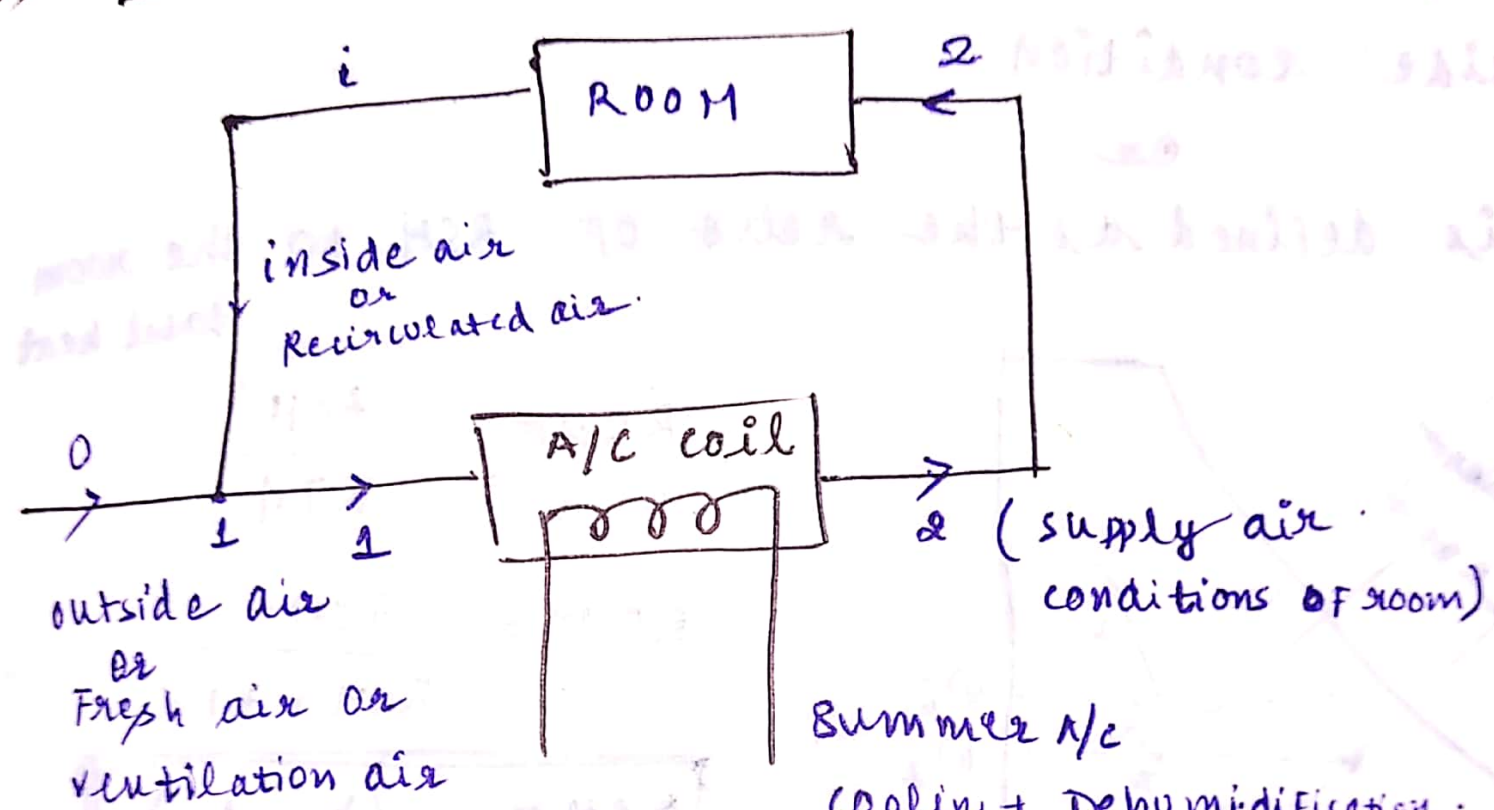 i
ROOM
2
inside air
or
Recirculated air.
0
1
1
A/C coil
2 (supply air
conditions of room)
outside air
or
Fresh air or
ventilation air
Summer A/C
Cooling + Dehumidification